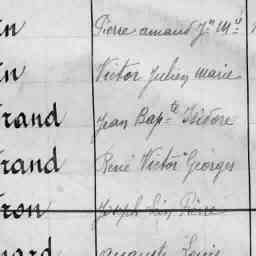 in Pierre amand Jn Mie
in Victor Julien marie
rand Jean Bapte Isidore
rand René Victor Georges
ron Joseph Léon Pierre
ard auguste Louis